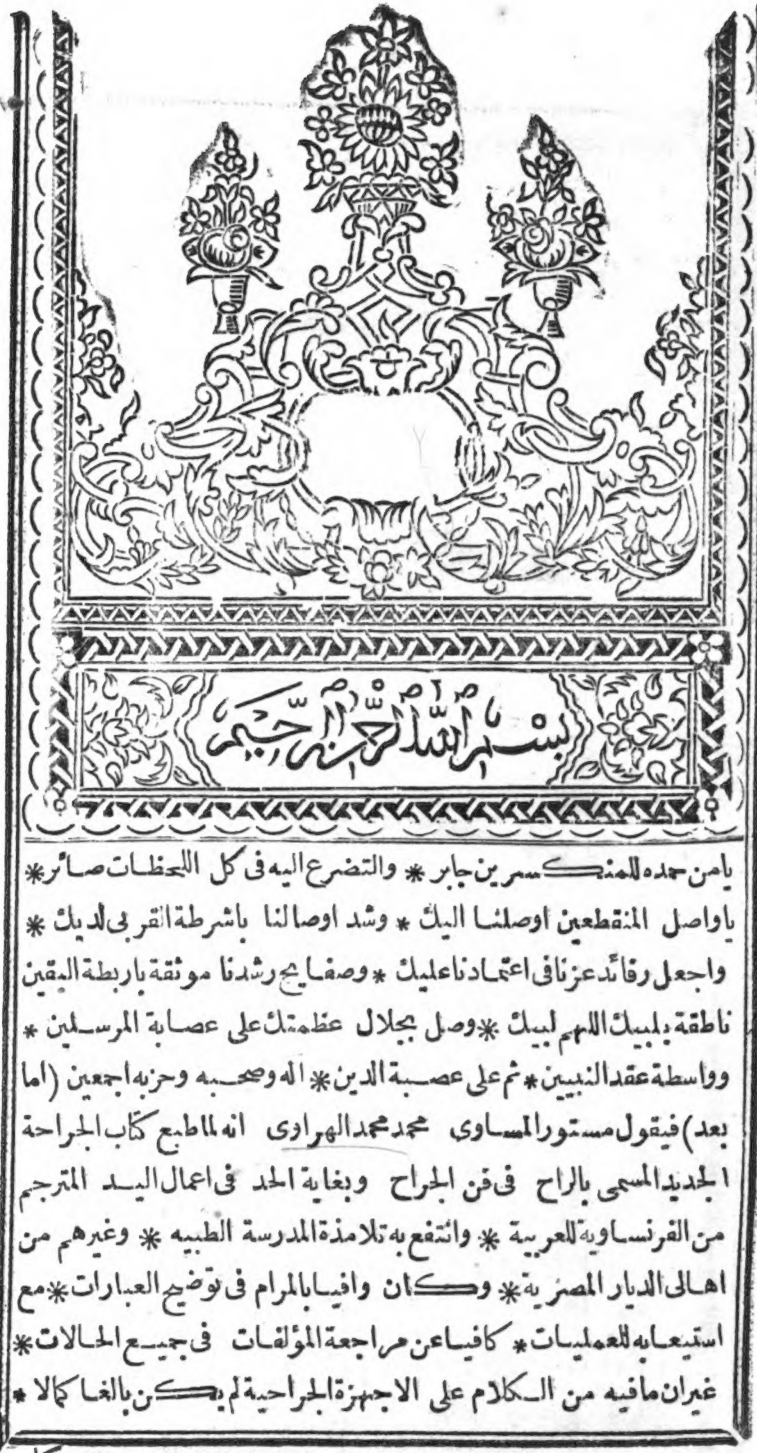 بسم الله الرحمن الرحيم
يامن حمده للمنكسرين جابر * والتضرع اليه فى كل اللحظات صائر *
ياواصل المنقطعين اوصلنا اليك * وشد اوصالنا باشرطة القربى لديك *
واجعل رفائد عزنا فى اعتمادنا عليك * وصفايح رشدنا موثقة باربطة اليقين
ناطقة بلبيك اللهم لبيك * وصل بجلال عظمتك على عصابة المرسلين *
وواسطة عقد النبيين * ثم على عصبة الدين * اله وصحبه وحزبه اجمعين (اما
بعد) فيقول مستور المساوى محمد محمد الهراوى انه لما طبع كتاب الجراحة
الجديد المسمى بالراح فى فن الجراح وبغاية الحد فى اعمال اليد المترجم
من الفرنساوية للعربية * وانتفع به تلامذة المدرسة الطبيه * وغيرهم من
اهالى الديار المصرية * وكان وافيا بالمرام فى توضيح العبارات * مع
استيعابه للعمليات * كافيا عن مراجعة المؤلفات فى جميع الحالات *
غير ان مافيه من الكلام على الاجهزة الجراحية لم يكن بالغا كمالا *